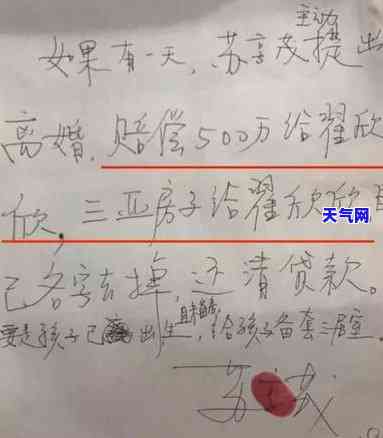 如果有一天，苏享茂主动提出
离婚，赔偿500万给翟欣
欣，三亚房子给翟欣欣自
己名字去掉，还清贷款。
要是孩子已出生，给孩子备套浴室
苏
天气网